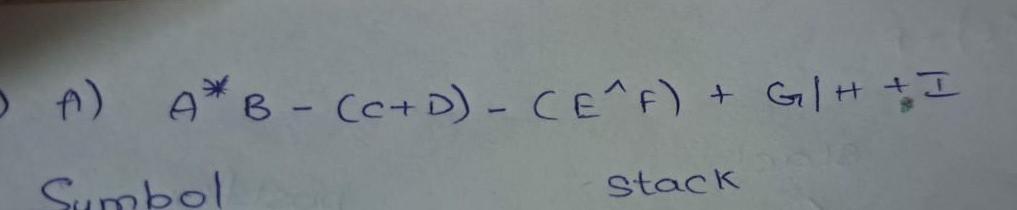 A) A * B - (C+D) - (E^F) + G/H + I
Symbol Stack